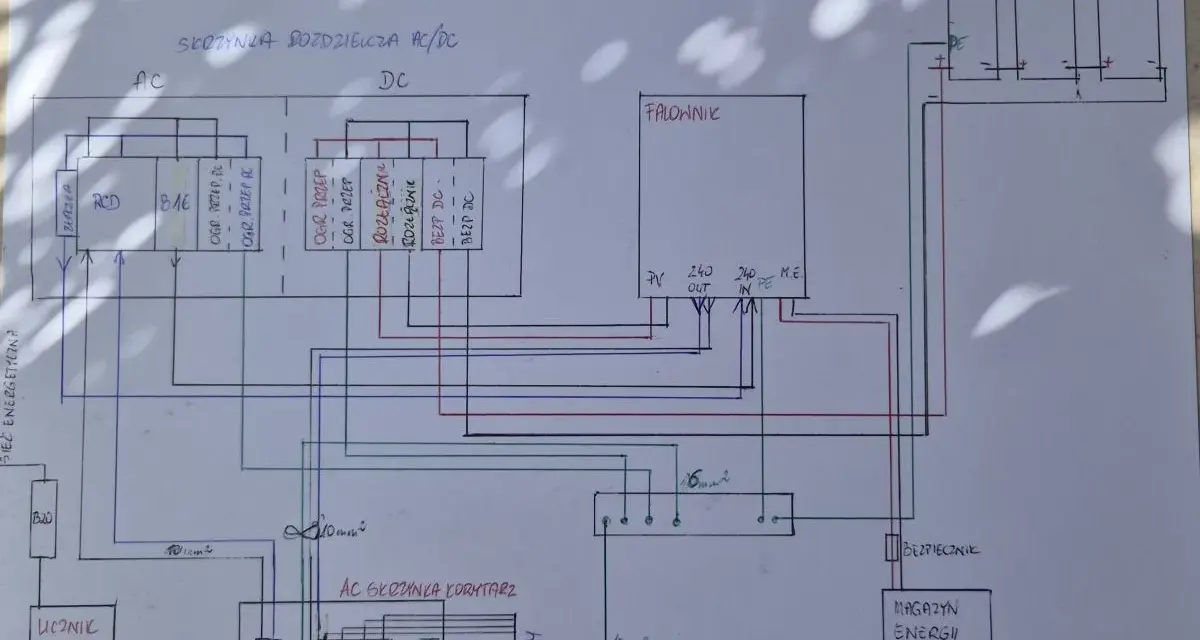 SKRZYNKA ROZDZIELCZA AC/DC
AC
DC
RCD
B16
OGR. PRZEP. DC
OGR. PRZEP AC
OGR PRZEP
OGR. PRZEP
ROZŁĄCZNIK
ROZŁĄCZNIK
BEZP DC.
BEZP DC
FALOWNIK
PV
240
OUT
240
IN
PE
M.E.
PE
+
-
+
-
+
-
-
SIEĆ ENERGETYCZNA
B20
LICZNIK
10mm²
16mm²
BEZPIECZNIK
MAGAZYN
ENERGII
AC SKRZYNKA KORYTARZ